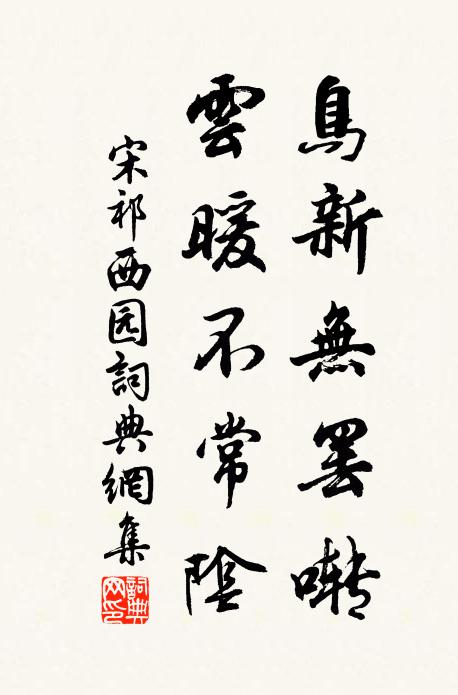 鳥新無罢囀
雲暖不常陰
宋祁西园詞典網集
詞典网印